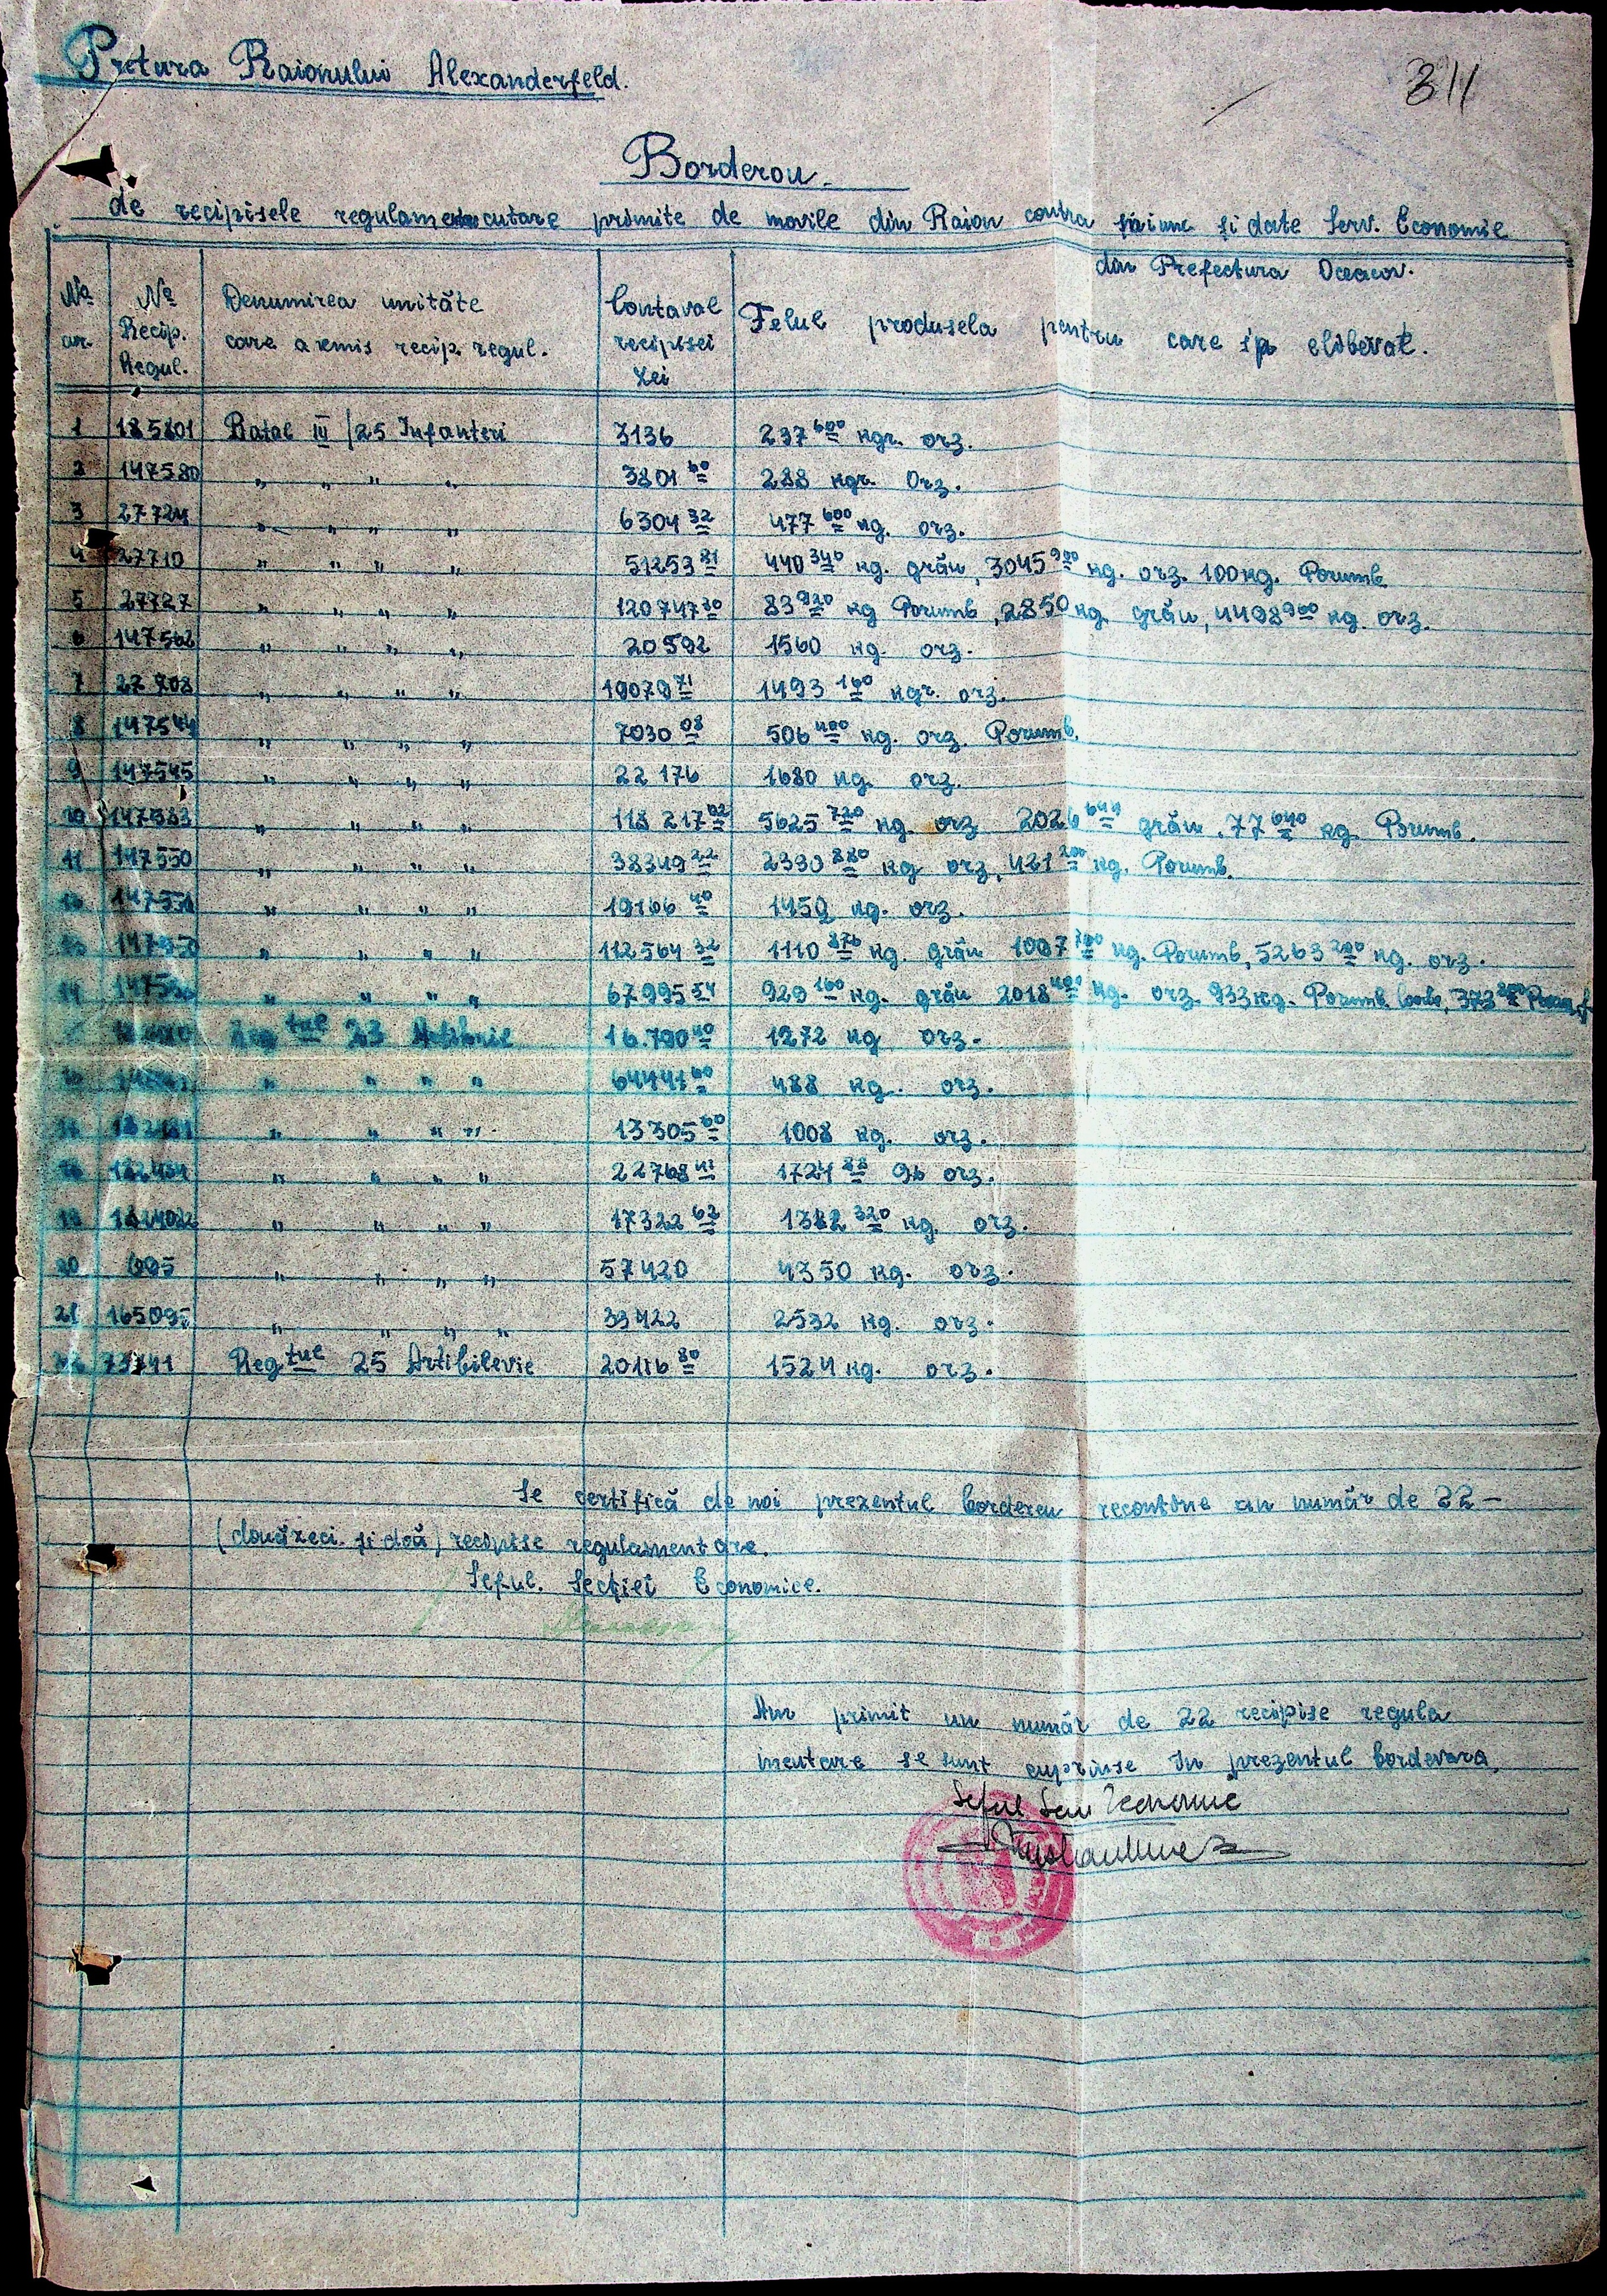 Pretura Raionului Alexanderfeld.
311
Borderou.
de recipisele regulamentare primite de movile din Raion contra și date Serv. Economie
din Prefectura Oceacov.
No. cr. No. Recip. Regul. Denumirea unităte care a emis recip. regul. Contaval recipisei Lei Felul produsela pentru care s'a eliberat.
1 185801 Batal III / 25 Infanteri 3136 237 600 kgr. orz.
2 147580 " " " " 3801 60 288 kgr. Orz.
3 27724 " " " " 6304 32 477 600 kg. orz.
4 27710 " " " " 51253 81 440 340 kg. grău, 3045 900 kg. orz. 100 kg. Porumb
5 27727 " " " " 120747 20 83 920 kg Porumb, 2850 kg. grău, 4498 900 kg. orz.
6 147562 " " " " 20592 1560 kg. orz.
7 27708 " " " " 19079 71 1493 160 kgr. orz.
8 147544 " " " " 7030 08 506 400 kg. orz. Porumb.
9 147545 " " " " 22176 1680 kg. orz.
10 147583 " " " " 118 217 02 5625 720 kg. orz 2026 644 grău, 77 640 kg. Porumb.
11 147550 " " " " 38349 22 2330 880 kg orz, 421 200 kg. Porumb.
" " " " 19166 40 1452 kg. orz.
" " " " 112564 32 1110 876 kg. grău 1097 700 kg. Porumb, 5263 200 kg. orz.
14 " " " " 67995 54 929 160 kg. grău 2018 400 kg. orz. 933 kg. Porumb 373
Reg tul 23 16.790 40 1272 kg orz.
" " " " 64441 60 488 kg. orz.
" " " " 13305 60 1008 kg. orz.
" " " " 22768 41 1724 88 orz.
19 " " " " 17322 62 1312 320 kg. orz.
20 695 " " " " 57420 4350 kg. orz.
21 165095 " " " " 33422 2532 kg. orz.
22 73741 Reg tul 25 Artibilerie 20116 80 1524 kg. orz.
Se certifică de noi prezentul bordereu recontine un număr de 22 —
(douăzeci. și doă) recipise regulamentare.
Seful. Secției Economice.
Am primit un număr de 22 recipise regula
mentare se sunt cuprinse în prezentul borderara.
Seful Serv Economic